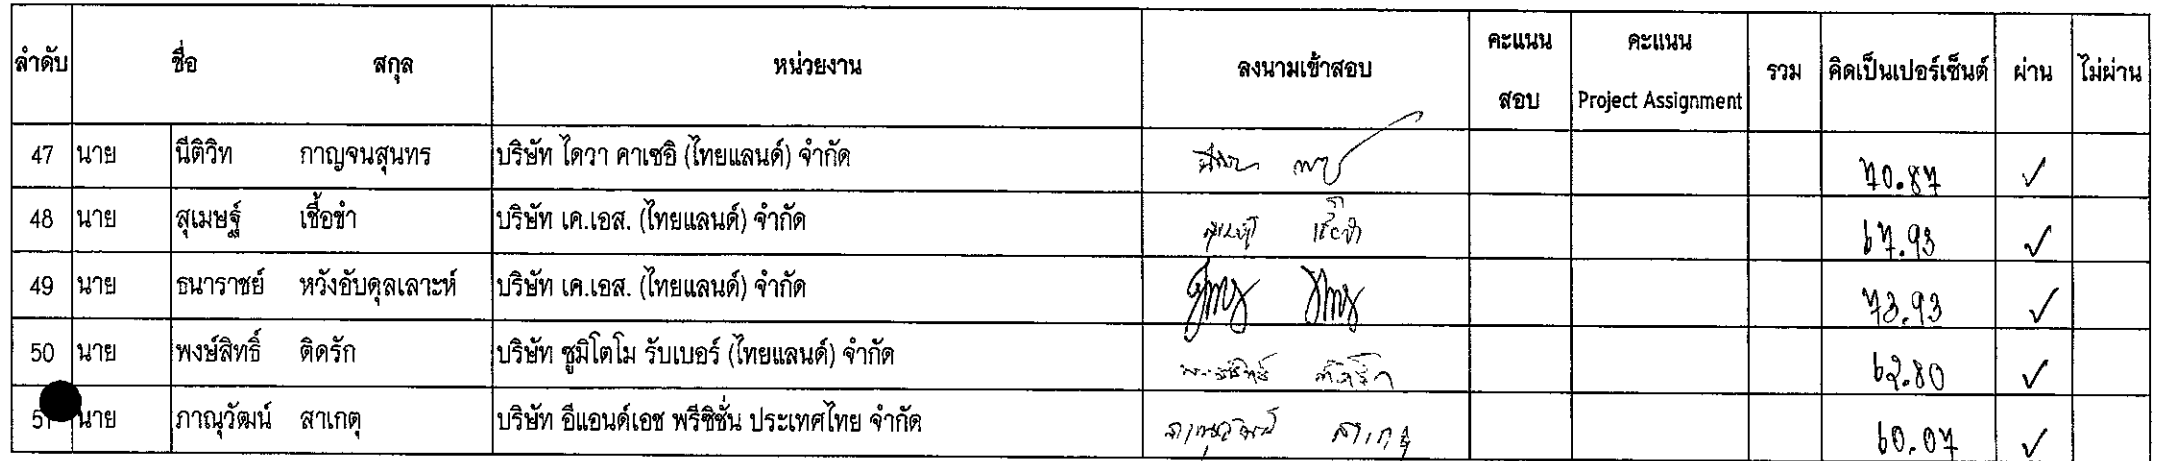 ลำดับ ชื่อ สกุล หน่วยงาน ลงนามเข้าสอบ คะแนนสอบ คะแนน Project Assignment รวม คิดเป็นเปอร์เซ็นต์ ผ่าน ไม่ผ่าน
47 นาย นีติวิท กาญจนสุนทร บริษัท ไดวา คาเซอิ (ไทยแลนด์) จำกัด 70.87 ✓
48 นาย สุเมษฐ์ เชื้อขำ บริษัท เค.เอส. (ไทยแลนด์) จำกัด สุเมษฐ์ เชื้อขำ 67.93 ✓
49 นาย ธนาราชย์ หวังอับดุลเลาะห์ บริษัท เค.เอส. (ไทยแลนด์) จำกัด 73.93 ✓
50 นาย พงษ์สิทธิ์ ติดรัก บริษัท ซูมิโตโม รับเบอร์ (ไทยแลนด์) จำกัด พงษ์สิทธิ์ ติดรัก 62.80 ✓
51 นาย ภาณุวัฒน์ สาเกตุ บริษัท อีแอนด์เอช พรีซิชั่น ประเทศไทย จำกัด ภาณุวัฒน์ สาเกตุ 60.07 ✓